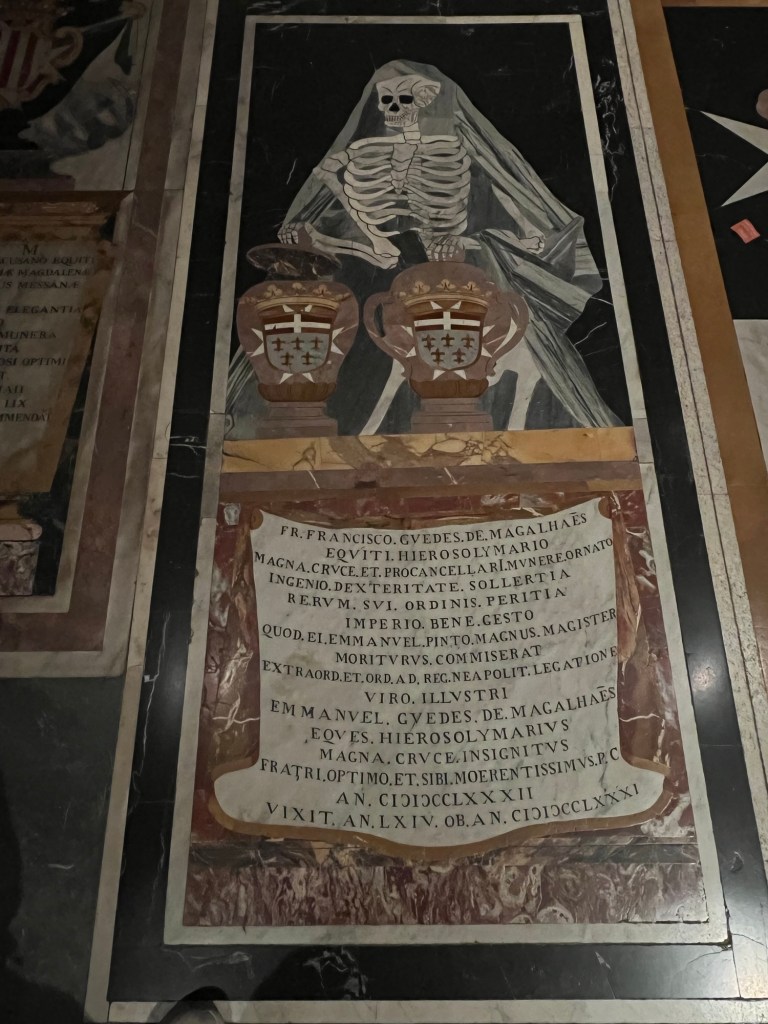 M.
EQUIT
MAGDALENÆ
MESSANÆ
ELEGANTIA
MUNERA
OPTIMI
LIX
FR. FRANCISCO. GVEDES. DE. MAGALHAẼS
EQVITI. HIEROSOLYMARIO
MAGNA. CRVCE. ET. PROCANCELLARI. MVNERE. ORNATO
INGENIO. DEXTERITATE. SOLLERTIA
RERVM. SVI. ORDINIS. PERITIA
IMPERIO. BENE. GESTO
QUOD. EI. EMMANVEL. PINTO. MAGNUS. MAGISTER
MORITVRVS. COMMISERAT
EXTRAORD. ET. ORD. AD. REG. NEAPOLIT. LEGATIONE
VIRO. ILLVSTRI
EMMANVEL. GVEDES. DE. MAGALHAẼS
EQVES. HIEROSOLYMARIVS
MAGNA. CRVCE. INSIGNITVS
FRATRI. OPTIMO. ET. SIBI. MOERENTISSIMVS. P. C
AN. CIƆIƆCCLXXXII
VIXIT. AN. LXIV. OB. AN. CIƆIƆCCLXXXI